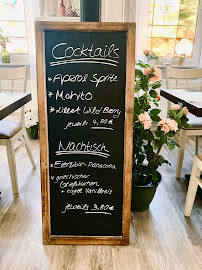 Cocktails
* Aperol Spritz
* Mohito
* Lillet Wild Berry
jeweils 4,80
Nachtisch
* Eierlikör-Panacotta
* griechischer
Grießkuchen
+ eigel Vanilleeis
jeweils 3,80